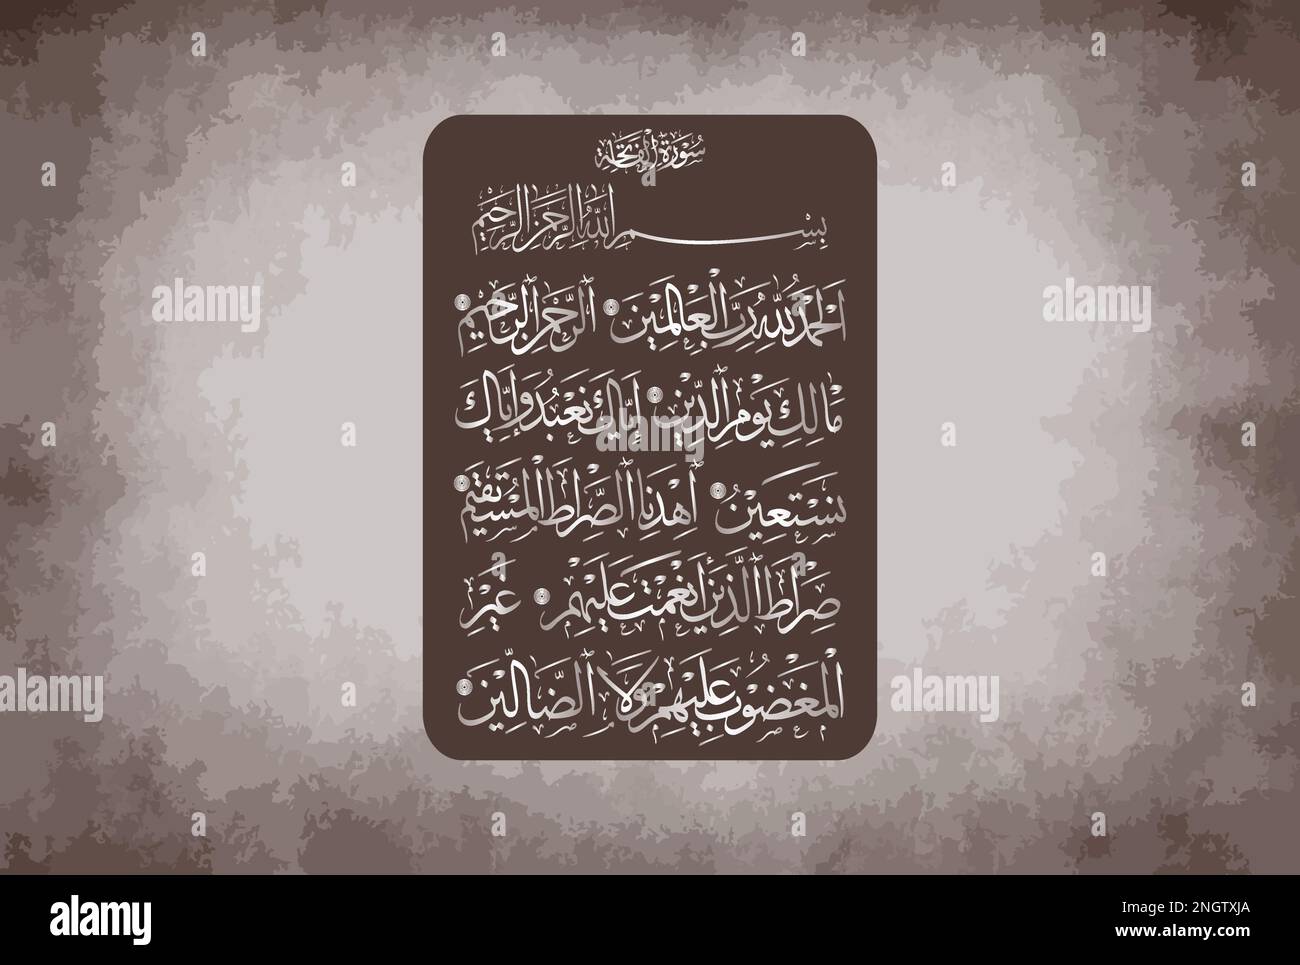 سُورَةُ الْفَاتِحَة
بِسْمِ اللَّهِ الرَّحْمَنِ الرَّحِيمِ
اَلْحَمْدُ لِلَّهِ رَبِّ الْعَالَمِينَ ۝ اَلرَّحْمَنِ الرَّحِيمِ ۝
مَالِكِ يَوْمِ الدِّينِ ۝ إِيَّاكَ نَعْبُدُ وَإِيَّاكَ
نَسْتَعِينُ ۝ اِهْدِنَا الصِّرَاطَ الْمُسْتَقِيمَ ۝
صِرَاطَ الَّذِينَ أَنْعَمْتَ عَلَيْهِمْ ۝ غَيْرِ
الْمَغْضُوبِ عَلَيْهِمْ وَلَا الضَّالِّينَ ۝
alamy
Image ID: 2NGTXJA
www.alamy.com